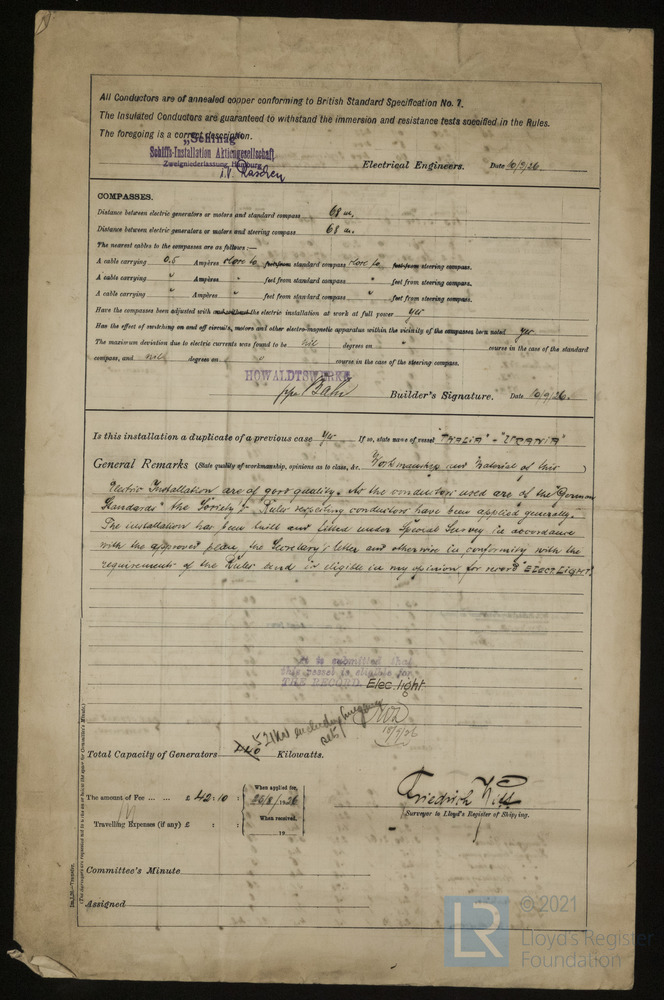 All Conductors are of annealed copper conforming to British Standard Specification No. 7.
The Insulated Conductors are guaranteed to withstand the immersion and resistance tests specified in the Rules.
The foregoing is a correct description.
„Schinag"
Schiffs-Installation Aktiengesellschaft
Zweigniederlassung Hamburg
Electrical Engineers. Date 10/9/26
COMPASSES.
Distance between electric generators or motors and standard compass 68 m.
Distance between electric generators or motors and steering compass 68 m.
The nearest cables to the compasses are as follows:—
A cable carrying 0.5 Ampères close to feet from standard compass close to feet from steering compass.
A cable carrying " Ampères " feet from standard compass " feet from steering compass.
A cable carrying " Ampères " feet from standard compass " feet from steering compass.
Have the compasses been adjusted with and without the electric installation at work at full power yes
Has the effect of switching on and off circuits, motors and other electro-magnetic apparatus within the vicinity of the compasses been noted yes
The maximum deviation due to electric currents was found to be nil degrees on " course in the case of the standard
compass, and nil degrees on " course in the case of the steering compass.
HOWALDTSWERKE
Builder's Signature. Date 10/9/26.
Is this installation a duplicate of a previous case Yes If so, state name of vessel "THALIA" - "URANIA"
General Remarks (State quality of workmanship, opinions as to class, &c. Workmanship and material of this )
Electric Installation are of good quality. As the conductors used are of the "German
Standards" the Society's Rules respecting conductors have been applied generally.
The installation has been built and fitted under Special Survey in accordance
with the approved plans, the Secretary's letter and otherwise in conformity with the
requirements of the Rules and is eligible in my opinion for record "ELECT. LIGHT".
It is submitted that
this vessel is eligible for
THE RECORD. Elec. light.
10/9/26
Total Capacity of Generators Kilowatts.
The amount of Fee ... ... £ 42 : 10 :
When applied for,
When received,
19
Travelling Expenses (if any) £ : :
Friedrich
Surveyor to Lloyd's Register of Shipping.
Committee's Minute
Assigned
LR
© 2021
Lloyd's Register
Foundation